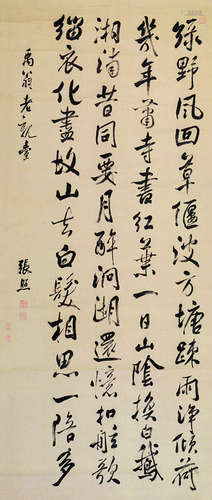 綠野風回草偃波方塘疎雨淨傾荷
幾年蕭寺書紅葉一日山陰換白鵝
湘浦昔同要月醉洞湖還憶扣舷歌
緇衣化盡故山去白髮相思一倍多
禹翁老親臺
張照